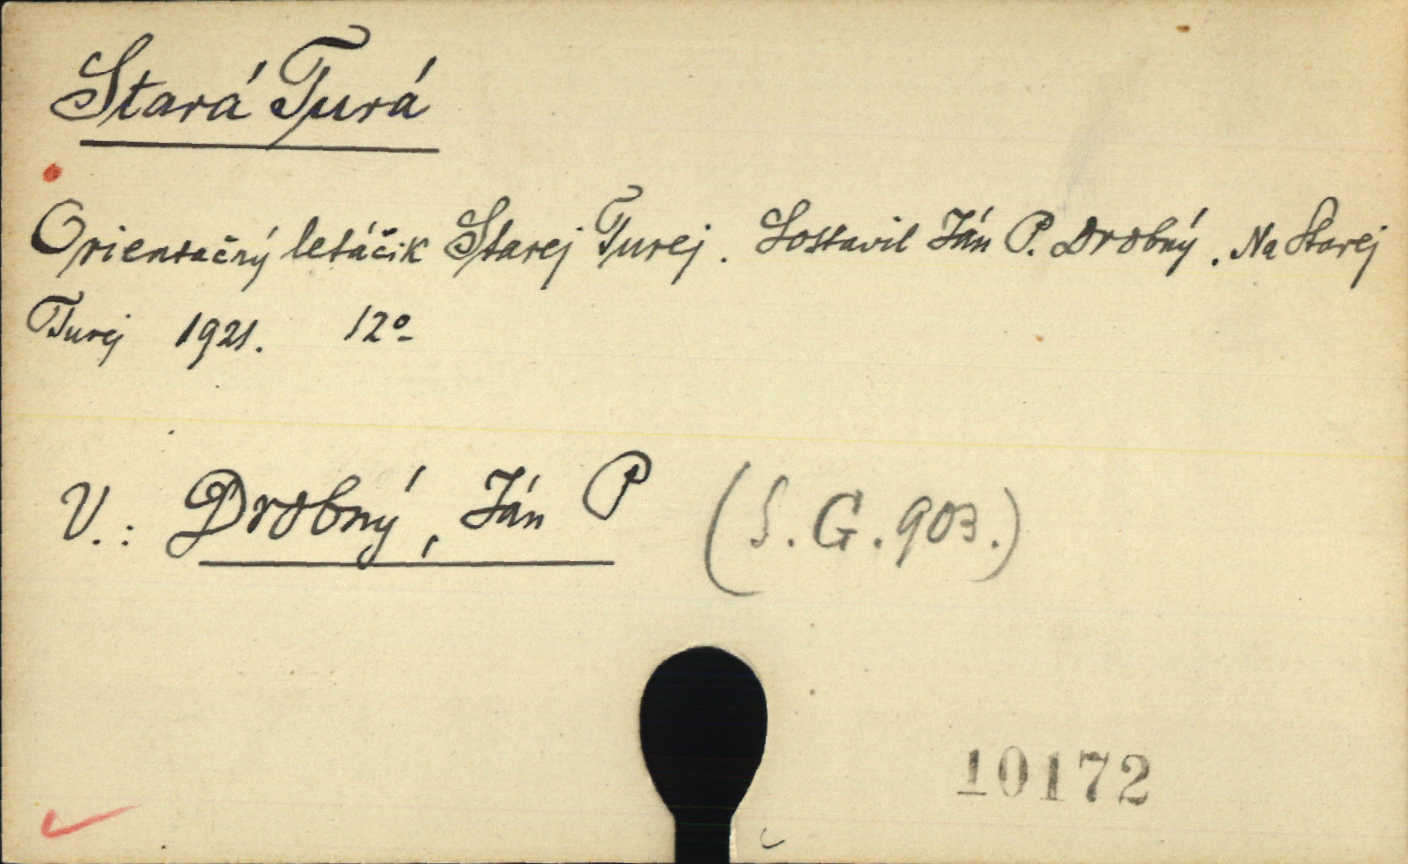 Stará Turá
Orientačný letáčik Starej Turej. Sostavil Ján P. Drobný. Na Starej
Turej 1921. 12º
V.: Drobný, Ján P (S.G.903.)
10172